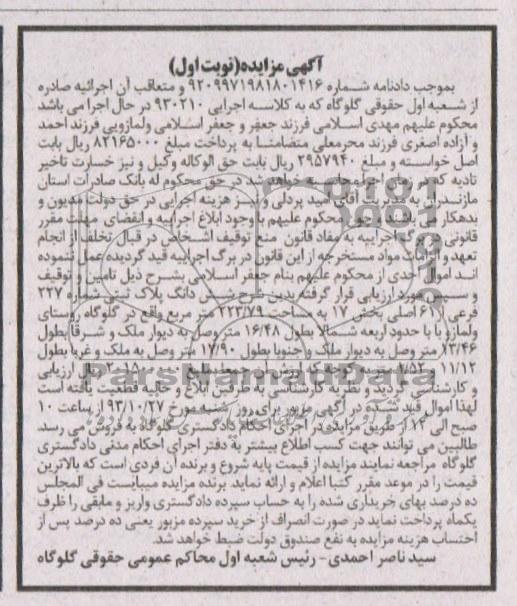 آگهی مزایده(نوبت اول)
بموجب دادنامه شماره ۹۲۰۹۹۷۱۹۸۱۸۰۱۴۱۶ و متعاقب آن اجرائیه صادره
از شعبه اول حقوقی گلوگاه که به کلاسه اجرایی ۹۳۰۲۱۰ در حال اجرا می باشد
محکوم علیهم مهدی اسلامی فرزند جعفر و جعفر اسلامی ولمازویی فرزند احمد
و آزاده اصغری فرزند محرمعلی متضامنا به پرداخت مبلغ ۸۲۱۶۵۰۰۰ ریال بابت
اصل خواسته و مبلغ ۲۹۵۷۹۴۰ ریال بابت حق الوکاله وکیل و نیز خسارت تاخیر
تادیه که در زمان اجرا محاسبه خواهد شد در حق محکوم له بانک صادرات استان
مازندران به مدیریت آقای امید پردلی و نیز هزینه اجرایی در حق دولت مدیون و
بدهکار می باشد محکوم علیهم با وجود ابلاغ اجراییه و انقضای مهلت مقرر
قانونی در برگ اجراییه به مفاد قانون منع توقیف اشخاص در قبال تخلف از انجام
تعهد و الزامات مواد مستخرجه از این قانون در برگ اجراییه قید گردیده عمل ننموده
اند اموال احدی از محکوم علیهم بنام جعفر اسلامی بشرح ذیل تامین و توقیف
و سپس مورد ارزیابی قرار گرفته بدین شرح شش دانگ پلاک ثبتی شماره ۲۲۷
فرعی از ۶۱ اصلی بخش ۱۷ به مساحت ۲۲۳/۷۹ متر مربع واقع در گلوگاه روستای
ولمازو با با حدود اربعه شمالا بطول ۱۶/۴۸ متر وصل به دیوار ملک و شرقا بطول
۱۳/۴۶ متر وصل به دیوار ملک و جنوبا بطول ۱۷/۹۰ متر وصل به ملک و غربا بطول
۱۱/۱۲ و ۱/۵۲ متر به کوچه که ارزش آن جمعا مبلغ ریال ارزیابی
و کارشناسی گردید و نظریه کارشناسی به طرفین ابلاغ و حالیه قطعیت یافته است
لهذا اموال قید شده در آگهی مزبور برای روز شنبه مورخ ۹۳/۱۰/۲۷ از ساعت ۱۰
صبح الی ۱۲ از طریق مزایده در اجرای احکام دادگستری گلوگاه به فروش می رسد
طالبین می توانند جهت کسب اطلاع بیشتر به دفتر اجرای احکام مدنی دادگستری
گلوگاه مراجعه نمایند مزایده از قیمت پایه شروع و برنده آن فردی است که بالاترین
قیمت را در موعد مقرر کتبا اعلام و ارائه نماید برنده مزایده میبایست فی المجلس
ده درصد بهای خریداری شده را به حساب سپرده دادگستری واریز و مابقی را ظرف
یکماه پرداخت نماید در صورت انصراف از خرید سپرده مزبور یعنی ده درصد پس از
احتساب هزینه مزایده به نفع صندوق دولت ضبط خواهد شد.
سید ناصر احمدی- رئیس شعبه اول محاکم عمومی حقوقی گلوگاه
ParsNamadData